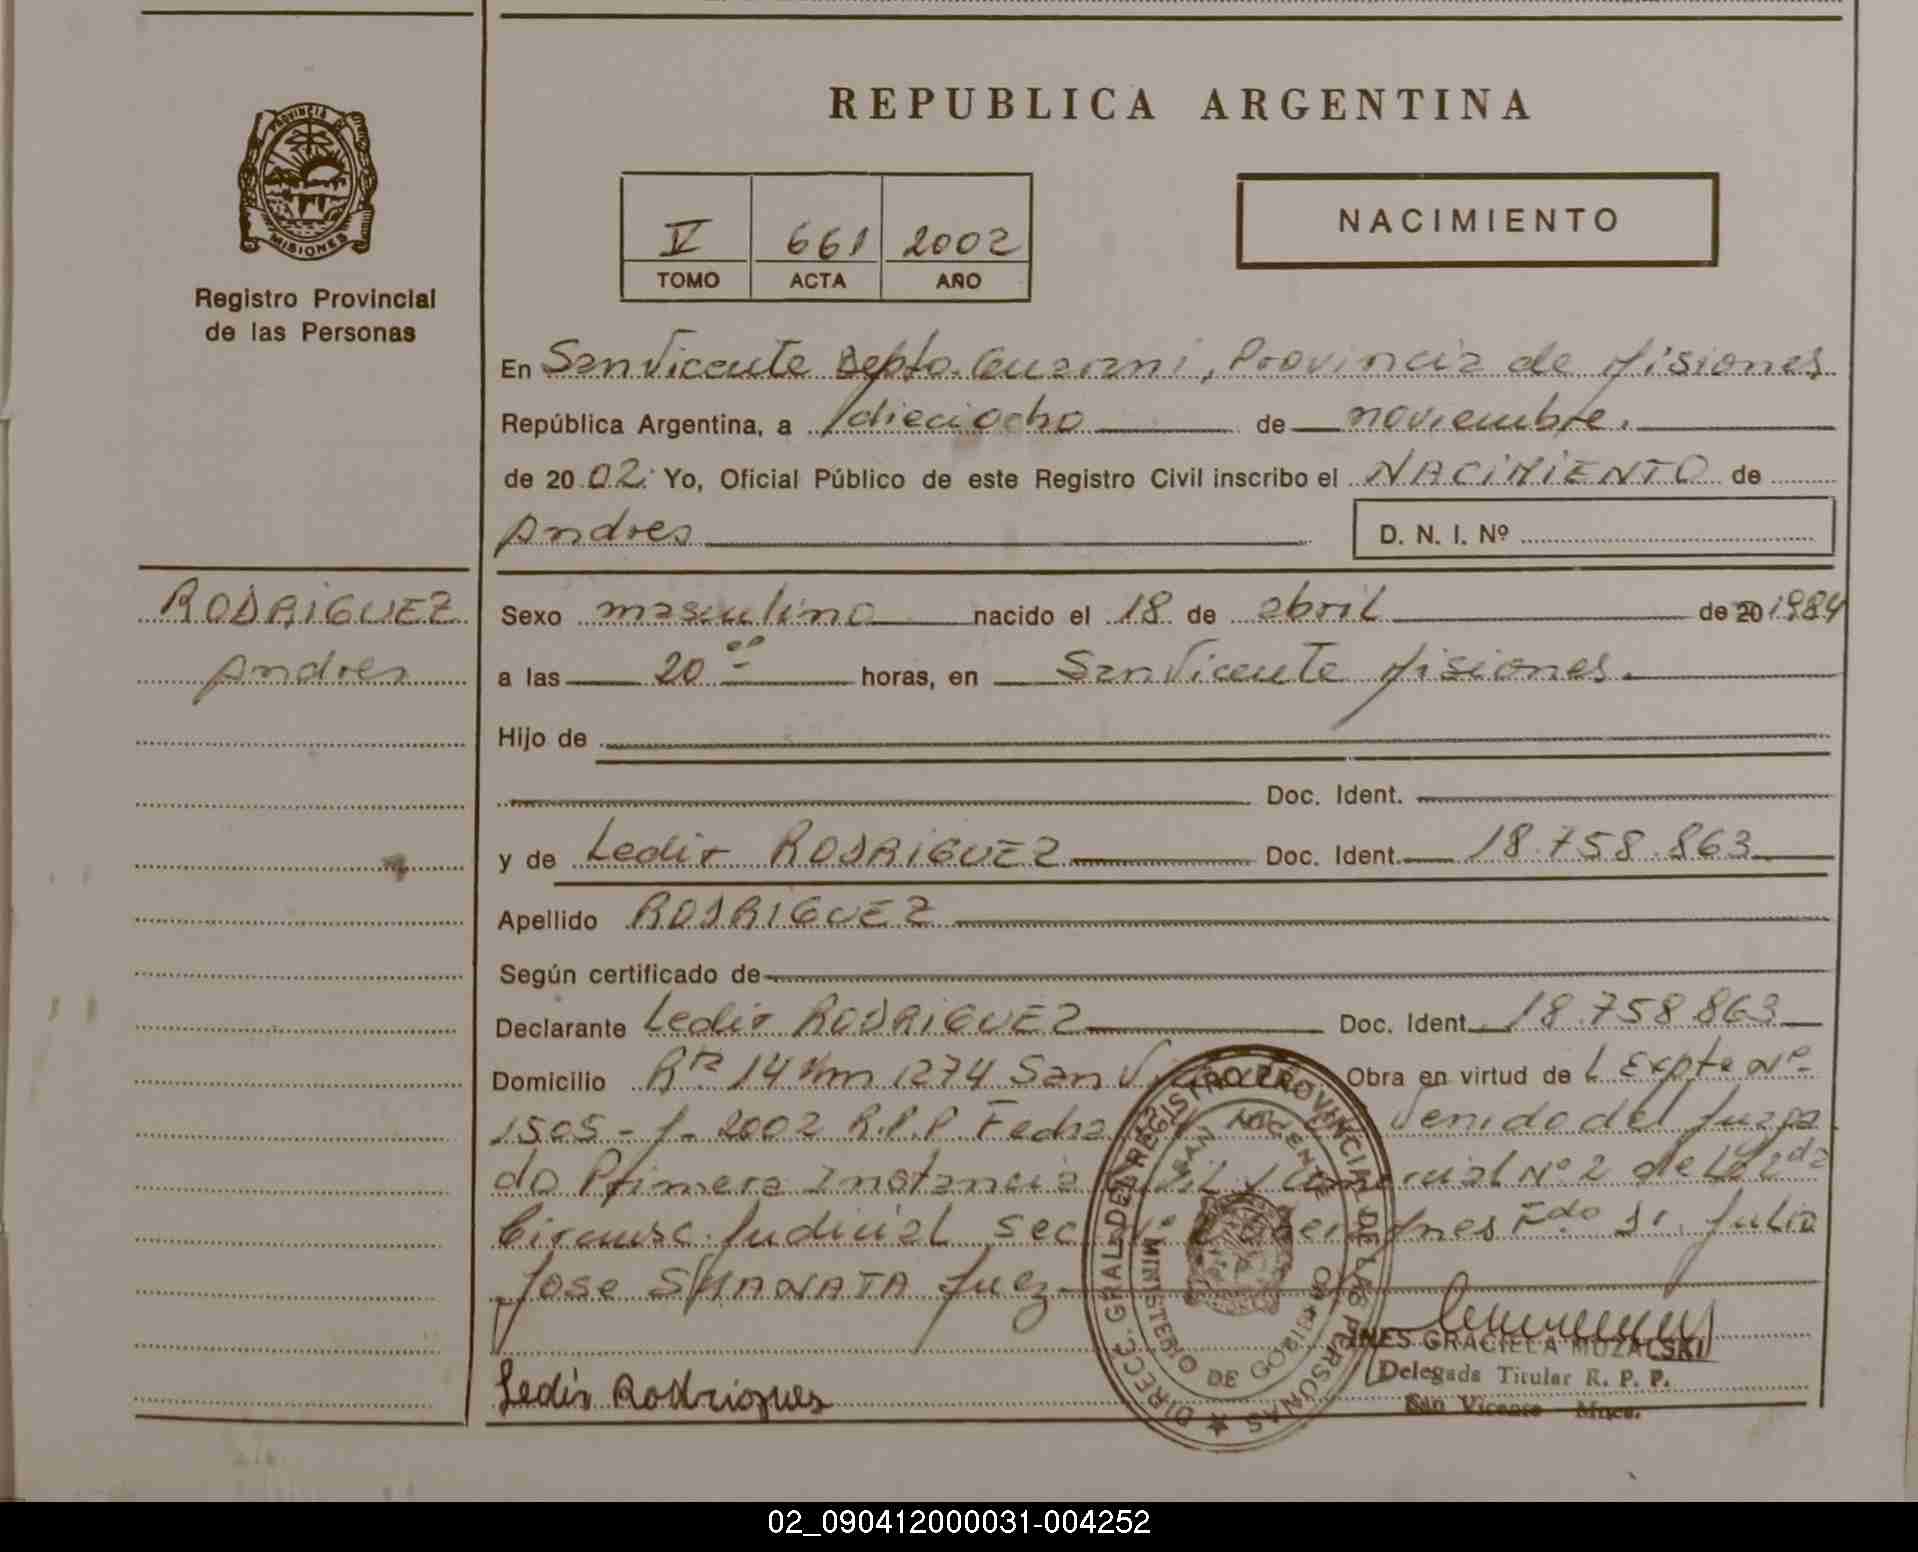 PROVINCIA DE
MISIONES
Registro Provincial
de las Personas
REPUBLICA ARGENTINA
V 661 2002
TOMO ACTA AÑO
NACIMIENTO
En San Vicente Depto. Guarani, Provincia de Misiones
República Argentina, a dieciocho de noviembre.
de 2002. Yo, Oficial Público de este Registro Civil inscribo el NACIMIENTO de
Andres D. N. I. Nº
RODRIGUEZ
Andres
Sexo masculino nacido el 18 de abril de 20 1984
a las 20 00 horas, en San Vicente Misiones.
Hijo de
Doc. Ident.
y de Ledir RODRIGUEZ Doc. Ident. 18.758.863
Apellido RODRIGUEZ
Según certificado de
Declarante Ledir RODRIGUEZ Doc. Ident. 18.758.863
Domicilio Rta 14 Km 1274 San Vicente Obra en virtud de l Expte Nº
1505-J-2002 R.P.P. Fecha venido del Juzga
do Primera Instancia Civil y Comercial Nº 2 de la 2da
Circunsc. Judicial Sec Nº Fdo Dr. Julio
Jose SHANATA Juez
Ledir Rodrigues
DIRECC. GRAL. DEL REGISTRO PROVINCIAL DE LAS PERSONAS
SAN VICENTE
MINISTERIO DE GOBIERNO
INES GRACIELA MUZALSKI
Delegada Titular R. P. P.
San Vicente Mnes.
02_090412000031-004252